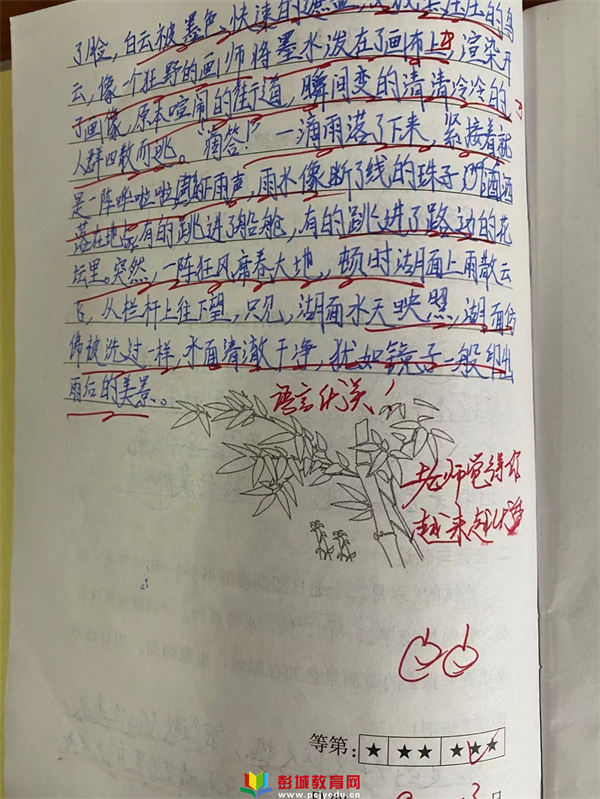 了脸，白云被墨色、快速的遮盖，
云，像一个狂野的画师将墨水泼在了画布上，渲染开
了画像，原本喧闹的街道，瞬间变的清清冷冷的，
人群四散而逃。"滴答！"一滴雨落了下来，紧接着就
是一阵哗啦啦的雨声，雨水像断了线的珠子
落在地上，有的跳进了船舱，有的跳进了路边的花
坛里。突然，一阵狂风席卷大地，顿时湖面上雨散云
飞，从栏杆上往下望，只见，湖面水天映照，湖面仿
佛被洗过一样，水面清澈干净，犹如镜子一般
雨后的美景。
语言优美！
老师觉得你
越来越优秀
等第：★ ★★ ★★★
彭城教育网
pcjyedu.cn